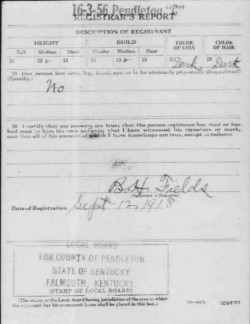 16-3-56 Pendleton
REGISTRAR'S REPORT
DESCRIPTION OF REGISTRANT
HEIGHT BUILD COLOR OF EYES COLOR OF HAIR
Tall Medium Short Slender Medium Stout
21 22 23 24 25 26 27 Dark 28 Dark
29 Has person lost arm, leg, hand, eye, or is he obviously physically disqualified?
(Specify.)
No
30 I certify that my answers are true; that the person registered has read or has
had read to him his own answers; that I have witnessed his signature or mark,
and that all of his answers of which I have knowledge are true, except as follows:
B.H. Fields
Date of Registration Sept 12 1918
LOCAL BOARD
FOR COUNTY OF PENDLETON
STATE OF KENTUCKY
FALMOUTH, KENTUCKY
(STAMP OF LOCAL BOARD)
(The stamp of the Local Board having jurisdiction of the area in which
the registrant has his permanent home shall be placed in this box.)